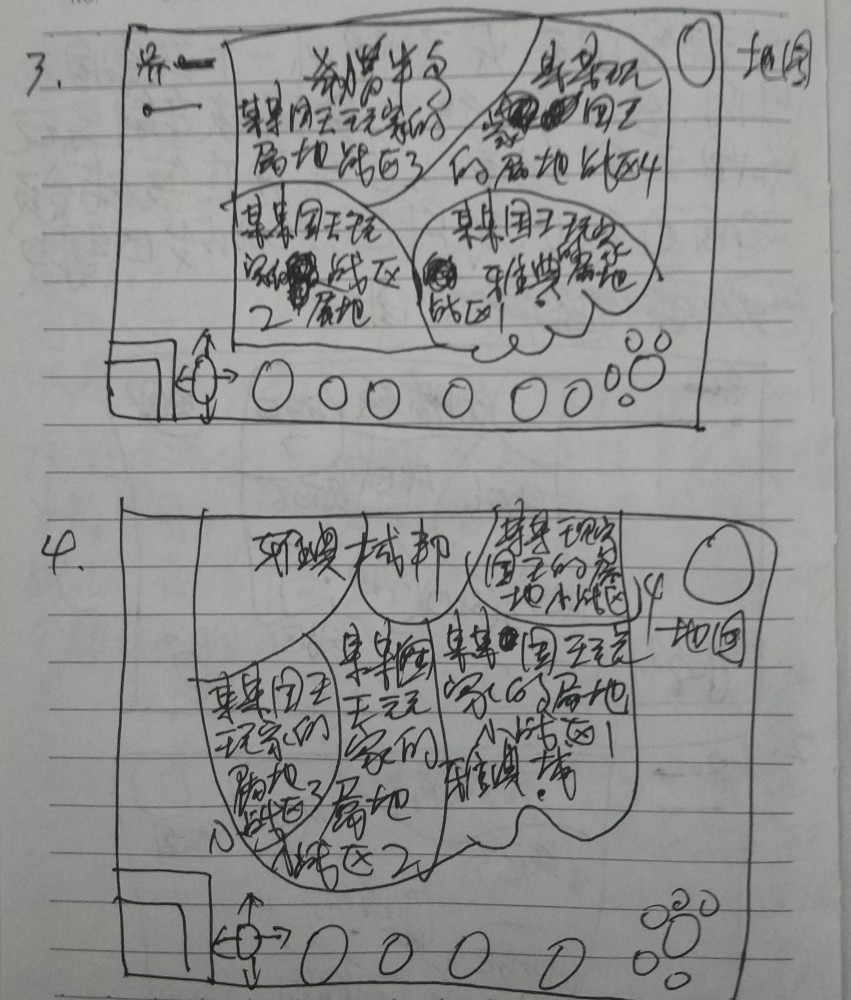 3.
希腊半岛
某某国王玩家的
属地战区3
某某玩
家国王
的属地战区4
地图
某某国王玩
家的战区
2 属地
某某国王玩家
雅典属地
战区1
4.
雅典城邦
某某玩家
国王的属
地小战区4
地图
某某国王
玩家的
属地
小战区3
某某国
王玩
家的
属地
小战区2
某某国王玩
家的属地
小战区1
雅典城